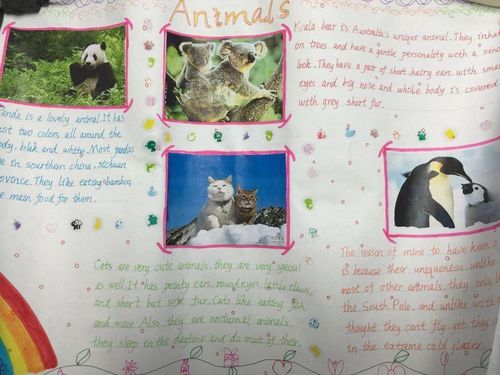 Animals
Koala bear is Australia's unique animal. They inhab
on trees and have a gentle personality with a
look. They have a pair of short, hairy ears, with small
eyes and big nose and whole body is covered
with grey short fur.
anda is a lovely animal. It has
st two colors all around the
dy. blak and white. Most pandas
ve in sourthern china, sichuan
ovince. They like eating bamboo,
e main food for them.
Cats are very cute animals. they are very special
as well. It has pointy ears, round eyes, little claws,
and short but soft fur. Cats like eating fish
and mice. Also they are nocturnal animals.
they sleep in the daytime and do most of their
The reason of mine to have
is because their uniqueness. unlike
most of other animals, they only
the South Pole. and unlike
thought they can't fly. yet they
in the extreme cold glacier.